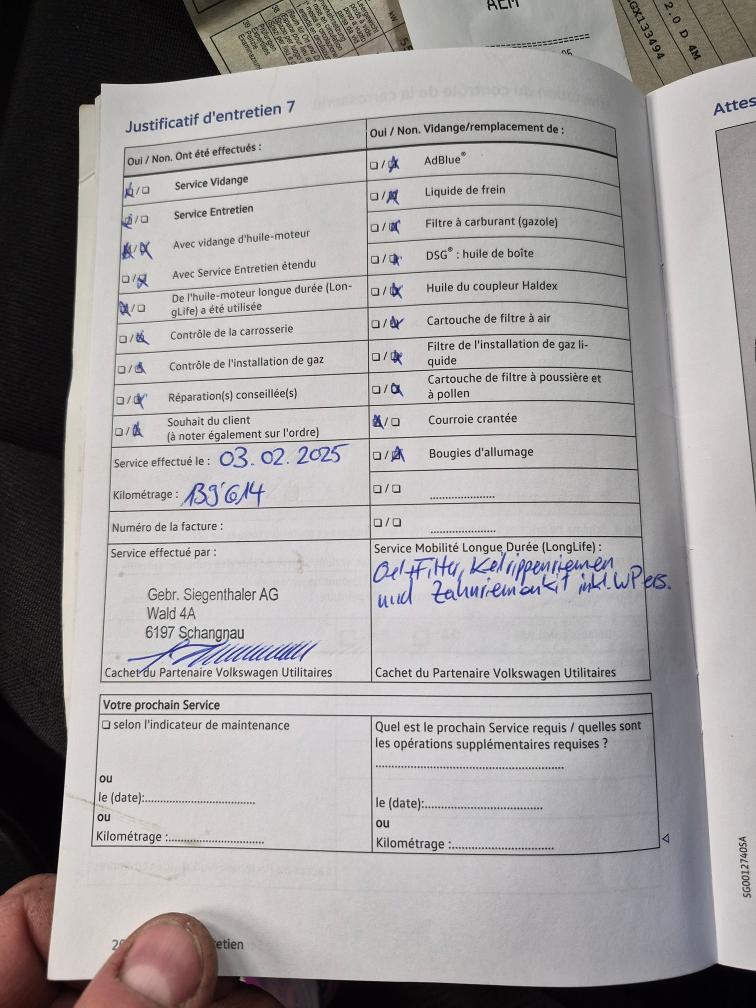 AEM
2.0 D 4M
GX133494
Justificatif d'entretien 7
Attes
Oui / Non. Ont été effectués :
Service Vidange
Service Entretien
Avec vidange d'huile-moteur
Avec Service Entretien étendu
De l'huile-moteur longue durée (Lon-
gLife) a été utilisée
Contrôle de la carrosserie
Contrôle de l'installation de gaz
Réparation(s) conseillée(s)
Souhait du client
(à noter également sur l'ordre)
Service effectué le : 03.02.2025
Kilométrage : 139'614
Numéro de la facture :
Oui / Non. Vidange/remplacement de :
AdBlue®
Liquide de frein
Filtre à carburant (gazole)
DSG® : huile de boîte
Huile du coupleur Haldex
Cartouche de filtre à air
Filtre de l'installation de gaz li-
quide
Cartouche de filtre à poussière et
à pollen
Courroie crantée
Bougies d'allumage
Service effectué par :
Gebr. Siegenthaler AG
Wald 4A
6197 Schangnau
Cachet du Partenaire Volkswagen Utilitaires
Service Mobilité Longue Durée (LongLife) :
Oel+Filter, Keilrippenriemen
und Zahnriemenkit inkl. WP ers.
Cachet du Partenaire Volkswagen Utilitaires
Votre prochain Service
selon l'indicateur de maintenance
ou
le (date):
ou
Kilométrage :
Quel est le prochain Service requis / quelles sont
les opérations supplémentaires requises ?
le (date):
ou
Kilométrage :
etien
5G0012740SA